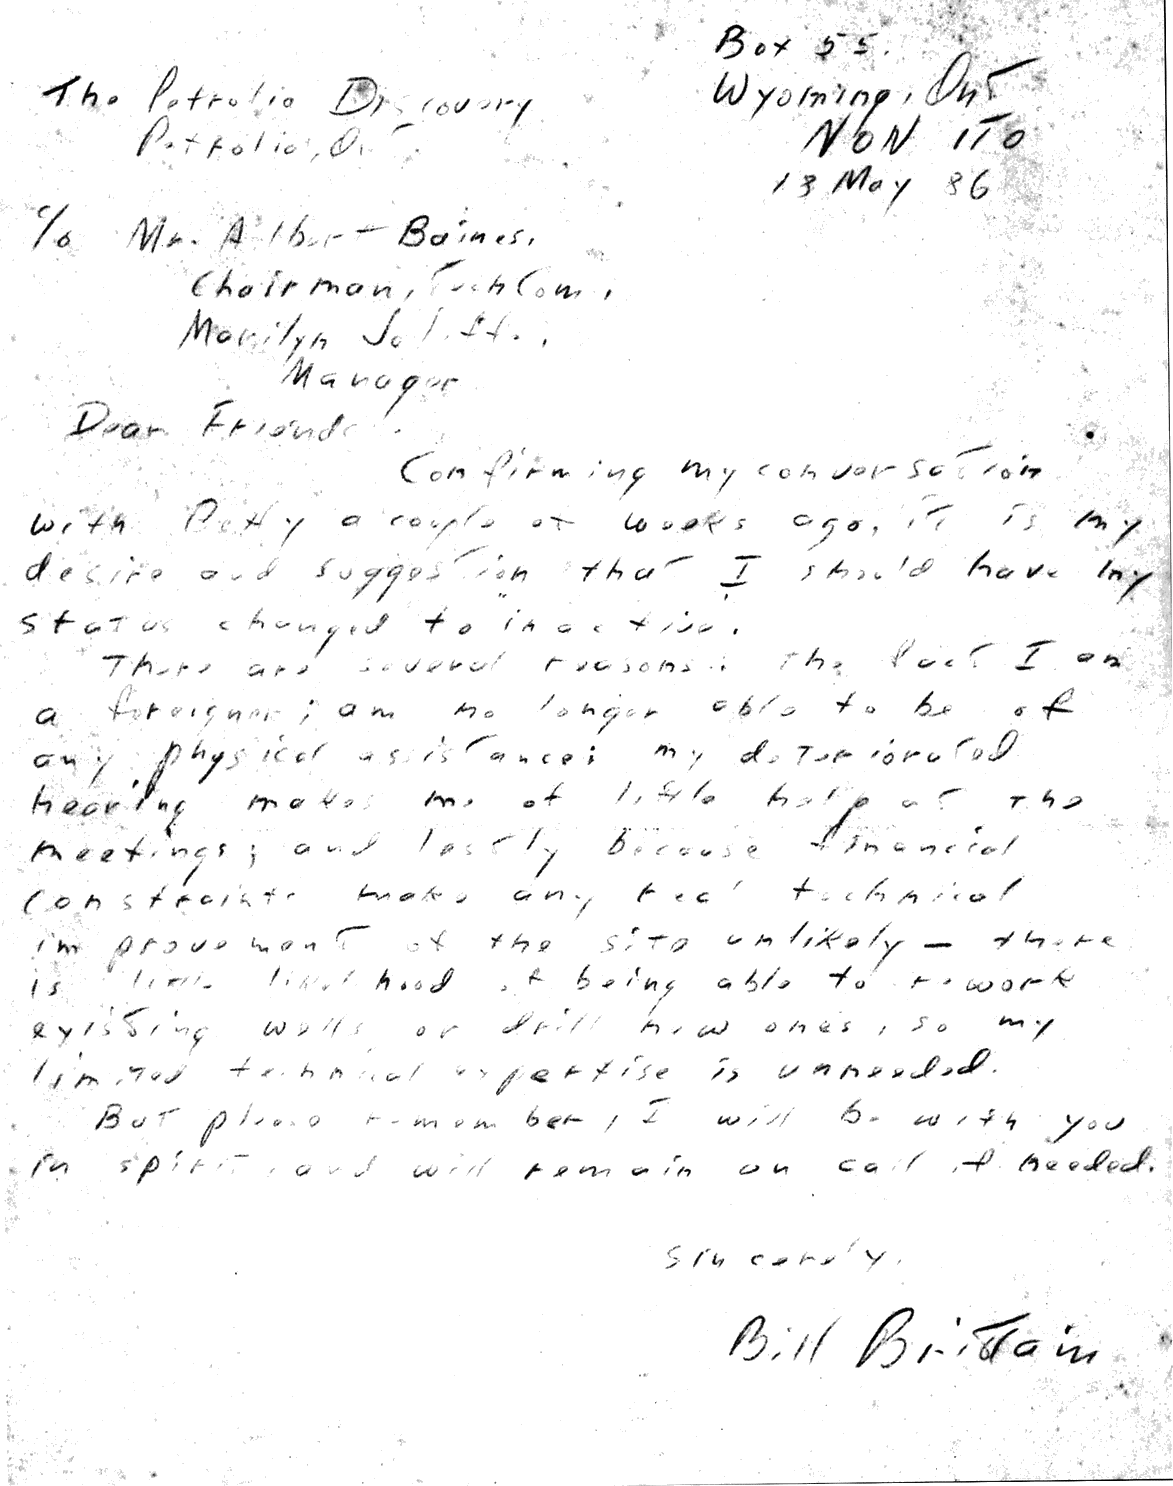 Box 55.
Wyoming, Ont
N0N 1T0
13 May 86
The Petrolia Discovery
Petrolia, Ont
c/o Mr. Albert Baines,
Chairman, Tech Com,
Marilyn
Manager
Dear Friends
Confirming my conversation
with Betty a couple of weeks ago, it is my
desire and suggestion that I should have my
status changed to "inactive".
There are several reasons: the fact I am
a foreigner; am no longer able to be of
any physical assistance; my deteriorated
hearing makes me of little help at the
meetings; and lastly because financial
constraints make any real technical
improvement of the site unlikely — there
is little likelihood of being able to rework
existing wells or drill new ones, so my
limited technical expertise is unneeded.
But please remember, I will be with you
in spirit, and will remain on call if needed.
Sincerely,
Bill Brittain